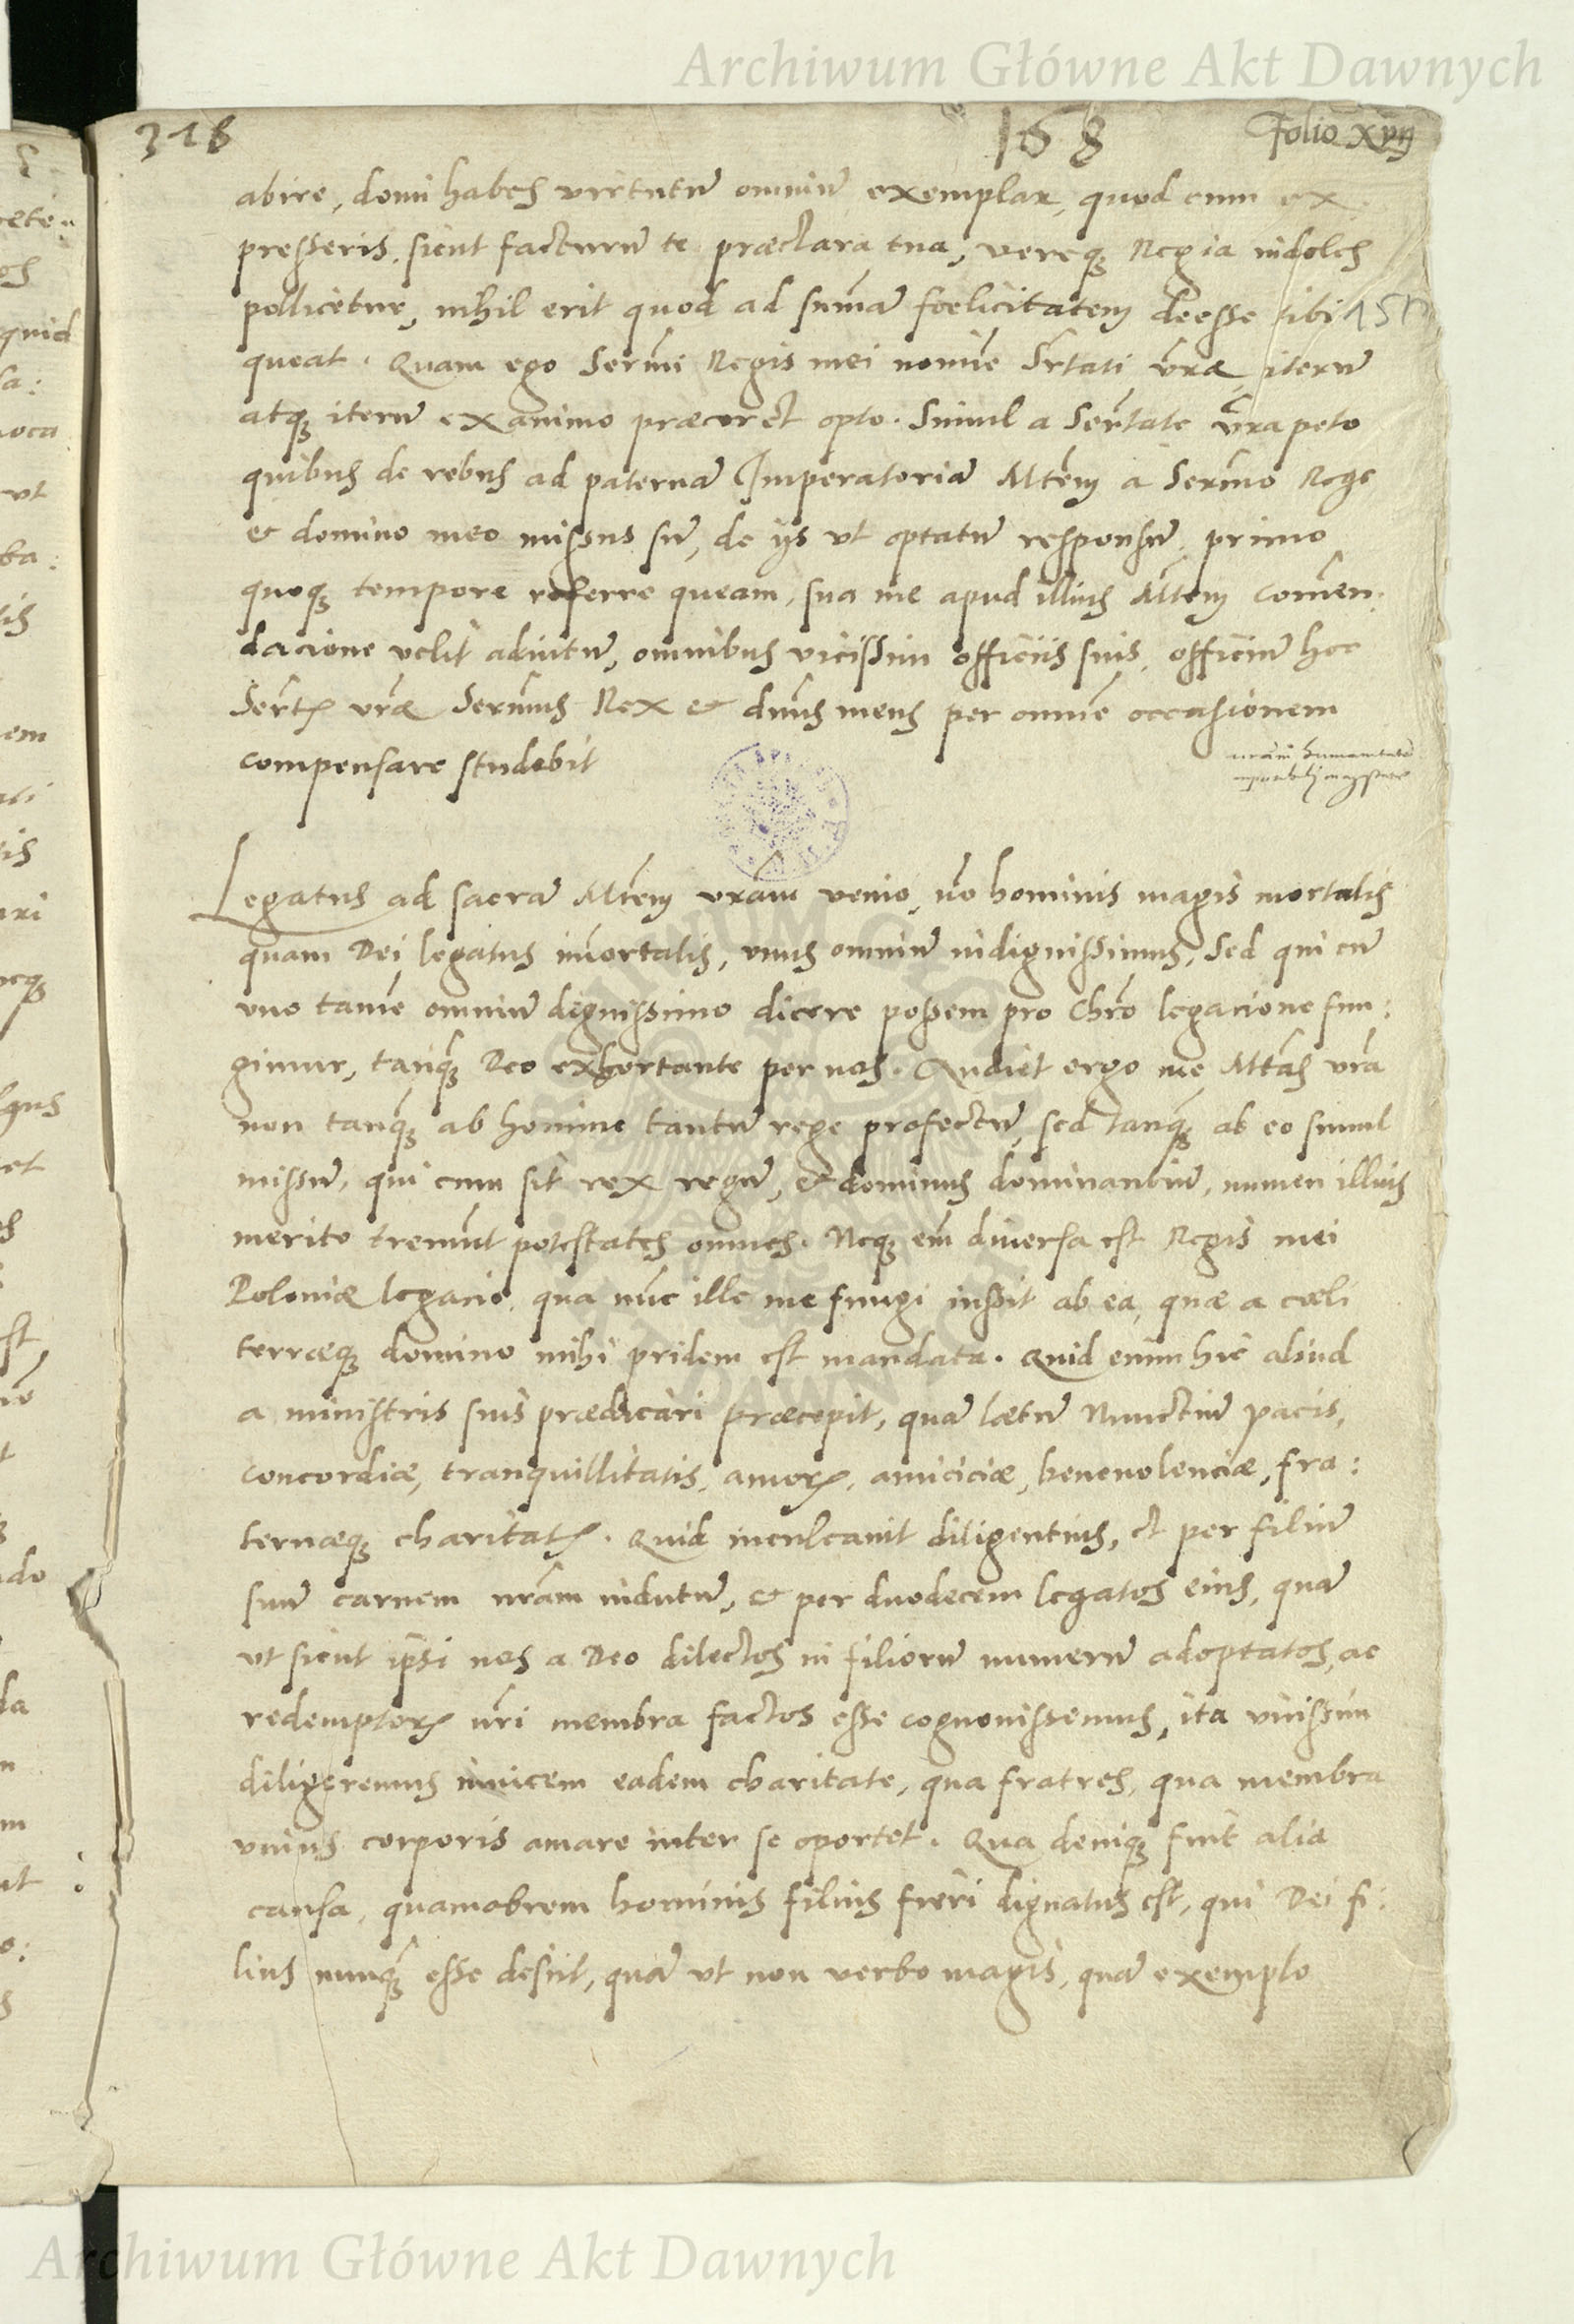 Archiwum Główne Akt Dawnych
318 168 Folio xvij
abire, domi habes virtutū omniū exemplar, quod cum ex
presseris, sicut facturū te præclara tua, vereqȝ Regia indoles
pollicetur, nihil erit quod ad sum̄ā fœlicitatem deesse tibi
queat. Quam ego Sermi Regis mei nomīe Srtati vrae iterū
atqȝ iterū ex animo præcor et opto. Simul a Sertate vra peto
quibus de rebus ad paternā Imperatoriā Mtem a Sermo Rege
& domino meo missus sū, de ijs vt optatū responsū primo
quoqȝ tempore referre queam, sua me apud illius Mtem com̄en:
dacione velit adiutū, omnibus vicissim officiis suis, officiū hoc
Sertis vrae Sermus Rex & dnus meus per omnē occasionem
compensare studebit
Legatus ad sacrā Mtem vram venio, nō hominis magis mortalis
quam Dei legatus im̄ortalis, vnus omniū indignissimus, Sed qui cū
vno tamē omniū dignissimo dicere possem pro Chrō legacione fun:
gimur, tanqȝ Deo exhortante per nos. Audiet ergo me Mtas vra
non tanqȝ ab homine tantū rege profectū, sed tanqȝ ab eo simul
missū, qui cum sit rex regū, & dominus dominantiū, numen illius
merito tremūt potestates omnes. Neqȝ em̄ diuersa est Regis mei
Poloniæ legacio, qua nūc ille me fungi iussit ab ea, quæ a cœli
terræqȝ domino mihi pridem est mandata. Quid enim hic aliud
a ministris suis prædicari præcepit, quā lætū Nunctiū pacis,
concordiæ, tranquillitatis, amoris, amiciciæ, beneuolenciæ, fra:
ternæqȝ charitatis. Quid inculcauit diligentius, et per filiū
suū carnem nrām indutū, & per duodecem legatos eius, quā
vt sicut ipsi nos a Deo dilectos in filiorū numerū adoptatos, ac
redemptoris nri membra factos esse cognouissemus, ita vicissim
diligeremus inuicem eadem charitate, qua fratres, qua membra
vnius corporis amare inter se oportet. Qua deniqȝ fuit alia
causa, quamobrem hominis filius fieri dignatus est, qui Dei fi:
lius nunqȝ esse desiit, quā vt non verbo magis, quā exemplo
Archiwum Główne Akt Dawnych